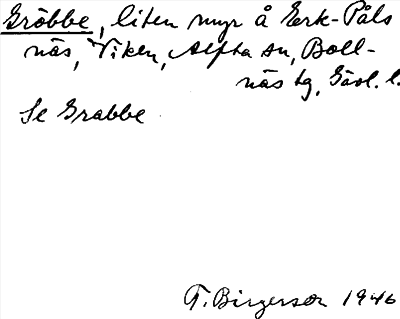 Gröbbe, liten myr å Erk-Påls
näs, Viken, Alfta sn, Boll-
näs tg, Gävl. l.
Se Grabbe
F. Birgerson 1946